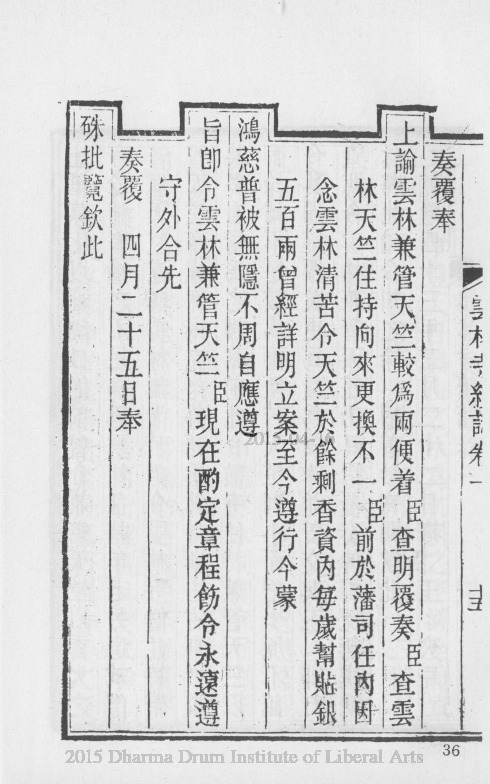 雲林寺續誌卷一
奏覆奉
上諭雲林兼管天竺較爲兩便着臣查明覆奏臣查雲
林天竺住持向來更換不一臣前於藩司任內因
念雲林清苦令天竺於餘剩香資內每歲幫貼銀
五百兩曾經詳明立案至今遵行今蒙
鴻慈普被無隱不周自應遵
旨卽令雲林兼管天竺臣現在酌定章程飭令永遠遵
守外合先
奏覆 四月二十五日奉
硃批覽欽此
2015 Dharma Drum Institute of Liberal Arts
36